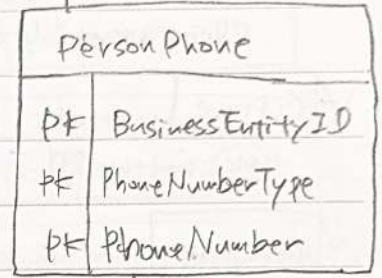 PersonPhone
PK BusinessEntityID
PK PhoneNumberType
PK PhoneNumber